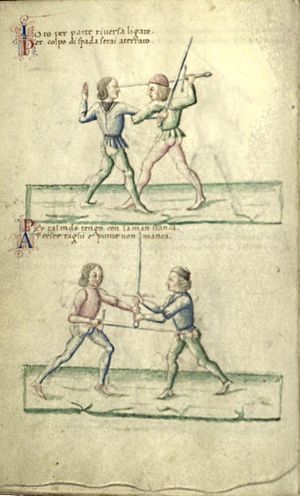 IO to per parte riversa ligato.
Per colpo di spada serai aterrato.
PEr tal modo tengo con la man stanca.
A Ferire taglii e punte non manca.